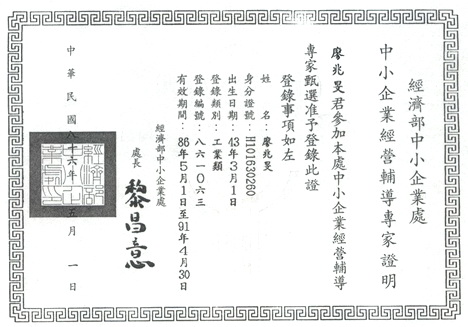 經濟部中小企業處
中小企業經營輔導專家證明
廖兆旻君參加本處中小企業經營輔導
專家甄選准予登錄此證
登錄事項如左
姓名：廖兆旻
身分證號：H101630260
出生日期：43年3月1日
登錄類別：工業類
登錄編號：八六一０六三
有效期間：86年5月1日至91年4月30日
經濟部中小企業處
處長 黎昌意
中華民國八十六年五月一日